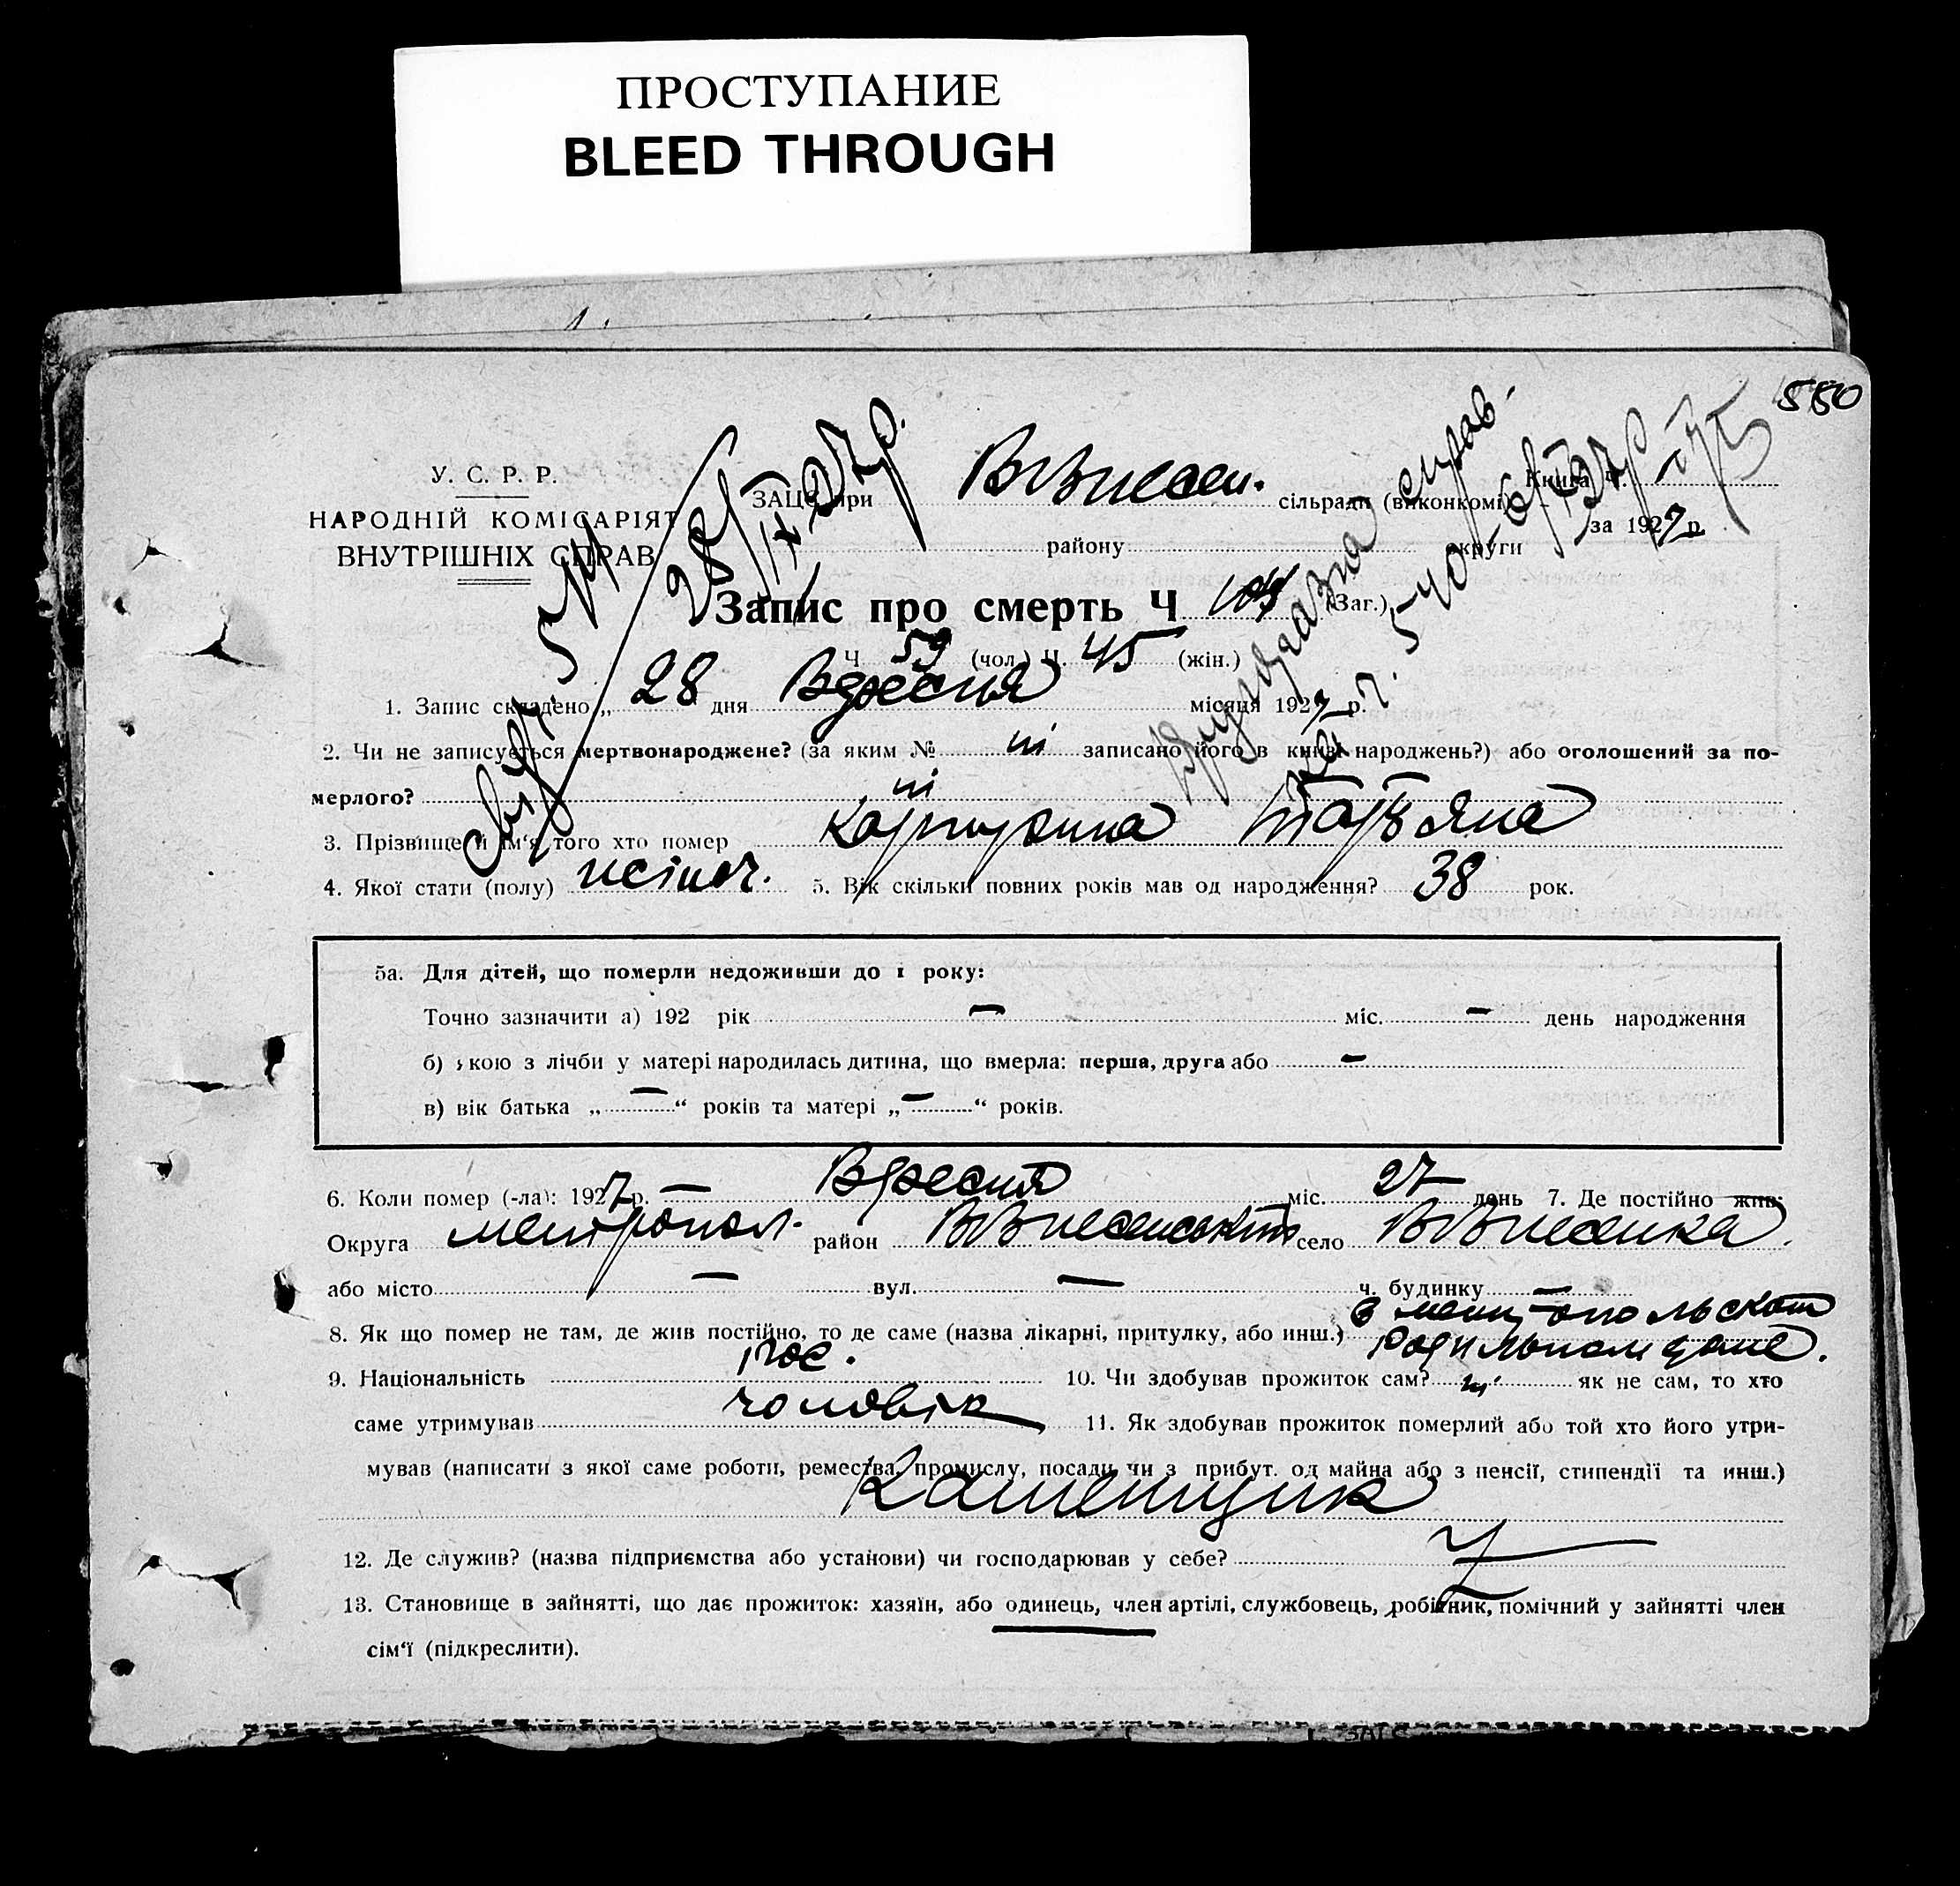 ПРОСТУПАНИЕ
BLEED THROUGH
550
У. С. Р. Р.
НАРОДНІЙ КОМІСАРІЯТ
ВНУТРІШНІХ СПРАВ
ЗАЦС при ВВнесен. сільради (виконкомі)
Книга Ч.
району округи за 1927 р.
28/IX 27 р.
Запис про смерть Ч 104 (Заг.)
Ч 59 (чол.) Ч. 45 (жін.)
1. Запис складено „ 28 дня Вересня місяця 1927 р.
2. Чи не записується мертвонароджене? (за яким № ні записано його в книзі народжень?) або оголошений за по-
мерлого? ні
3. Прізвище й ім'я того хто помер Татьяна
4. Якої стати (полу) жіноч. 5. Вік скільки повних років мав од народження? 38 рок.
5а. Для дітей, що померли недоживши до 1 року:
Точно зазначити а) 192 рік — міс. — день народження
б) якою з лічби у матері народилась дитина, що вмерла: перша, друга або —
в) вік батька „ — “ років та матері „ — “ років.
6. Коли помер (-ла): 1927 р. — Вересня міс. 27 день 7. Де постійно жив:
Округа Мелітопол. район ВВнесенський село ВВнесенка
або місто — вул. — ч. будинку —
8. Як що помер не там, де жив постійно, то де саме (назва лікарні, притулку, або инш.) в Мелитопольском
Родильном доме.
9. Національність Рос. 10. Чи здобував прожиток сам? ні як не сам, то хто
саме утримував чоловік 11. Як здобував прожиток померлий або той хто його утри-
мував (написати з якої саме роботи, ремества, промислу, посади чи з прибут. од майна або з пенсії, стипендії та инш.)
Каменщик
12. Де служив? (назва підприємства або установи) чи господарював у себе?
13. Становище в зайнятті, що дає прожиток: хазяїн, або одинець, член артілі, службовець, робітник, помічний у зайнятті член
сім'ї (підкреслити).